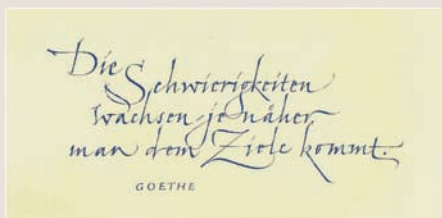 Die
Schwierigkeiten
wachsen je näher
man dem Ziele kommt.
GOETHE